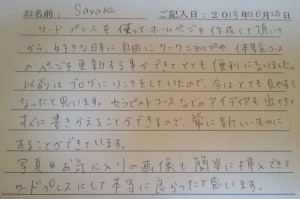 お名前: Sayaka ご記入日:2013年10月20日
ワードプレスを使ってホームページを作成して頂いて
から、好きな日時に自由にワークショップや体験会コース
のページを更新する事ができてとても便利になりました。
以前はブログにリンクをしていたので、今はとても見やすく
なったと思います。セラピストコースなどのアイディアも出てきて
すぐに書きかえることができるので、常に新しいものに
することができています。
写真やお気に入りの画像も簡単に挿入できて
ワードプレスにして本当に良かったと思います。